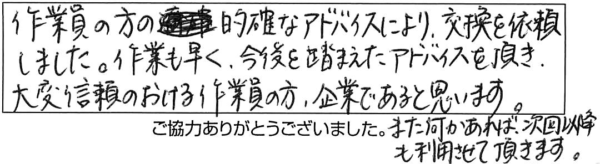 作業員の方の的確なアドバイスにより、交換を依頼
しました。作業も早く、今後を踏まえたアドバイスを頂き、
大変信頼のおける作業員の方、企業であると思います。
ご協力ありがとうございました。また何かあれば、次回以降
も利用させて頂きます。